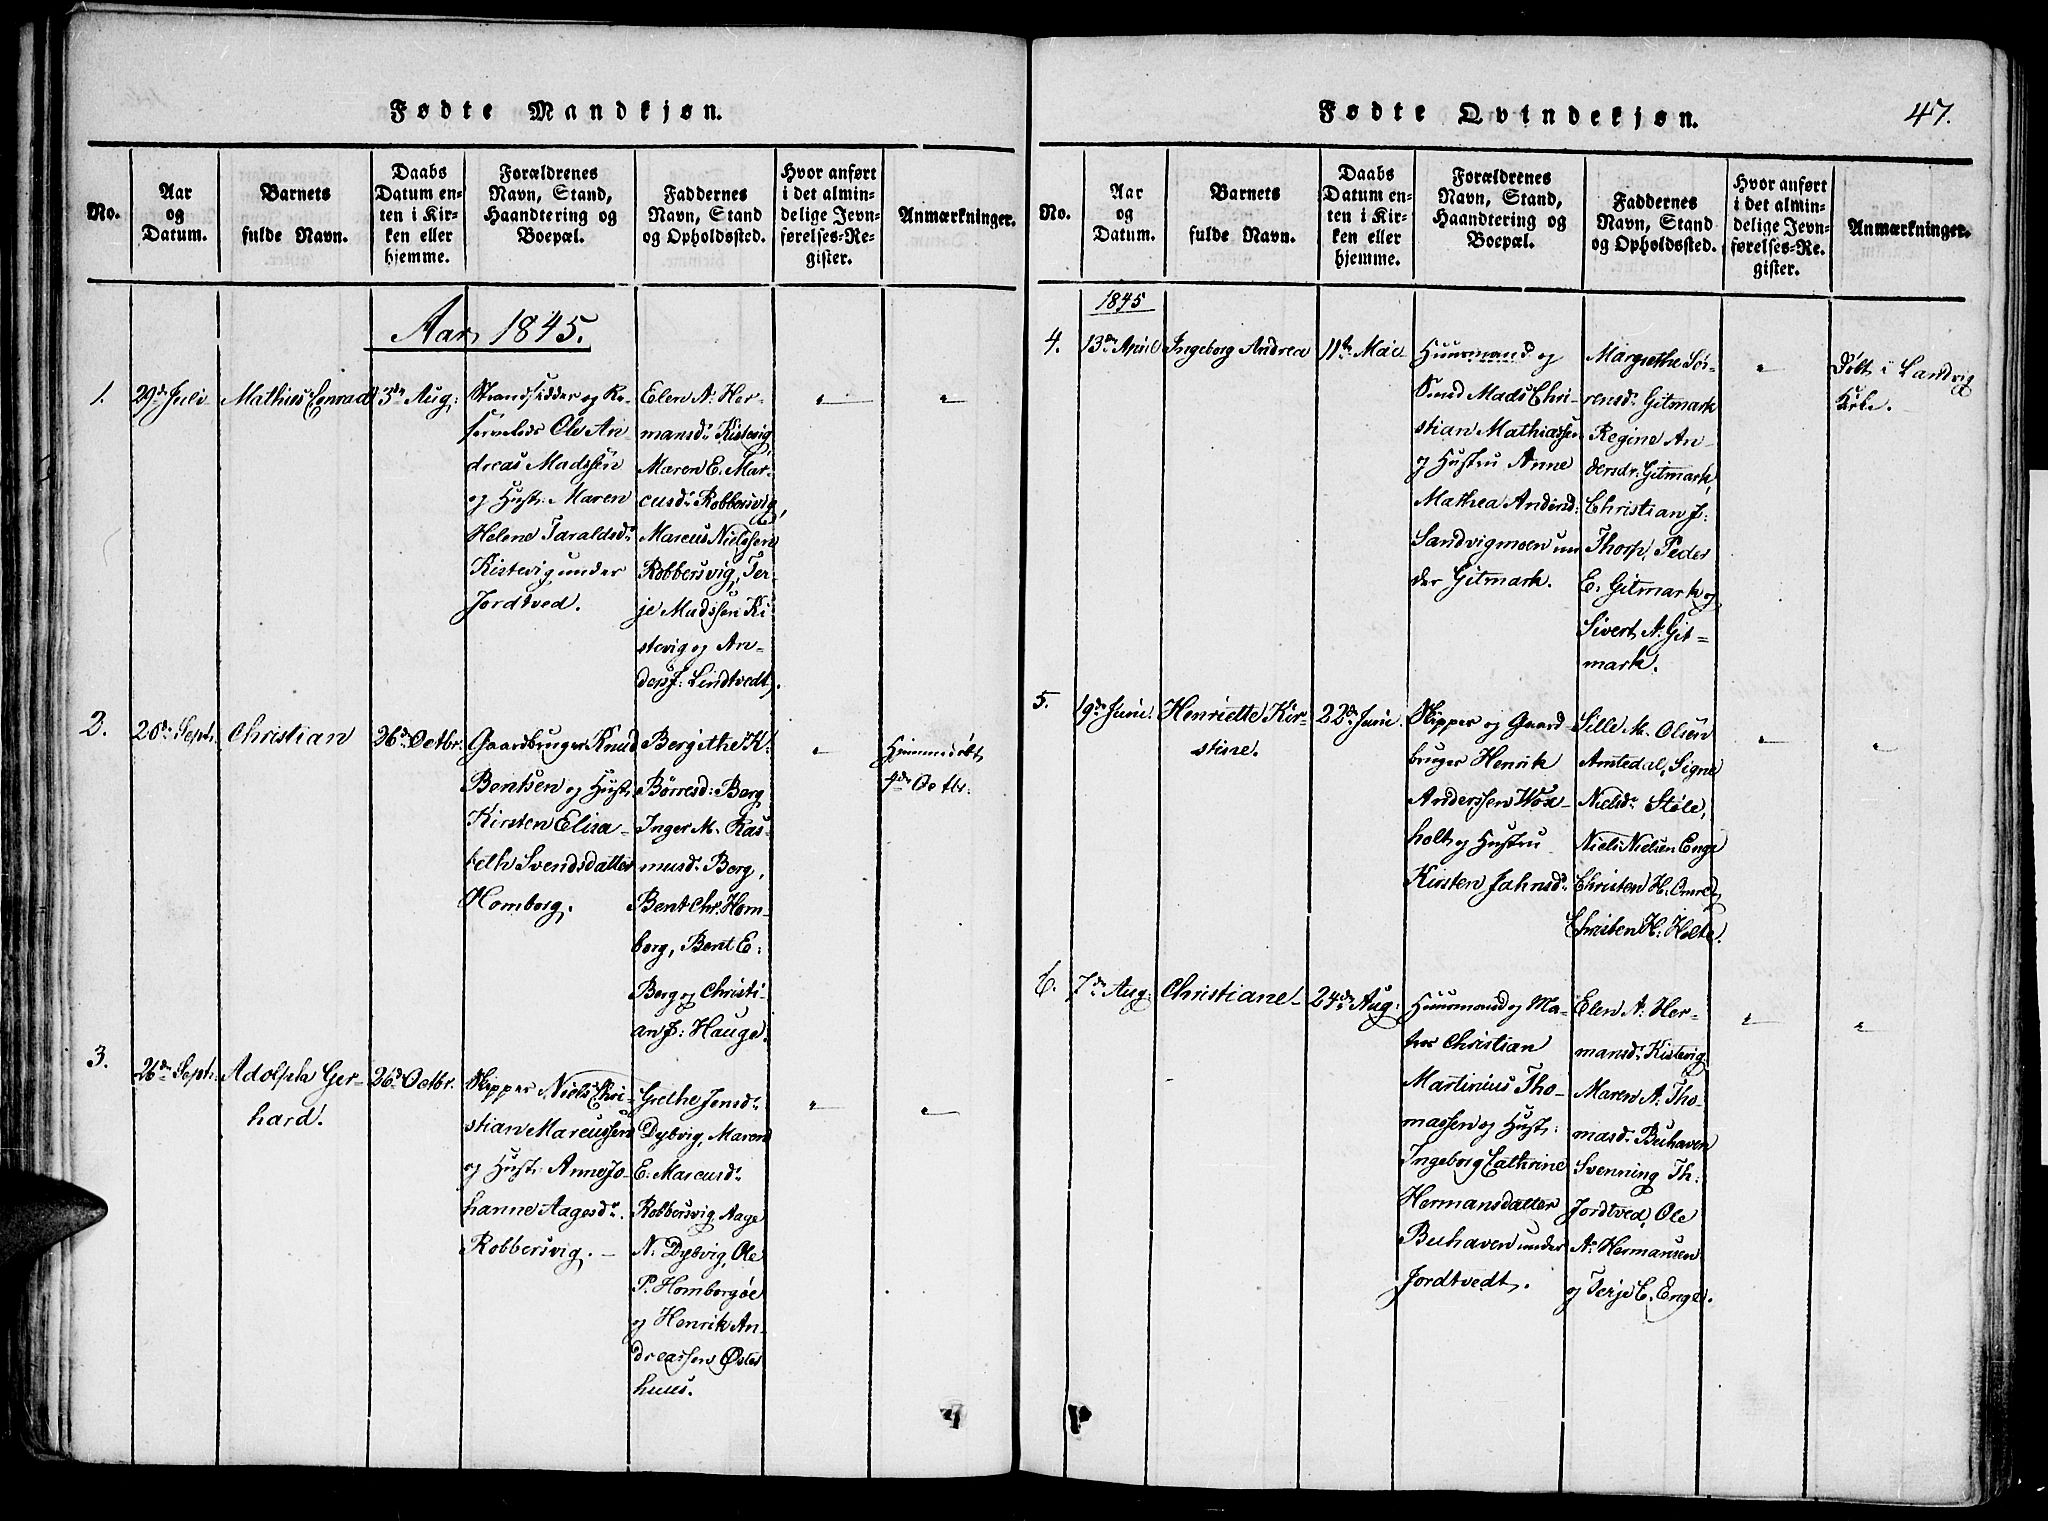 Fødte Mandkjøn.
No.
Aar
og
Datum.
Barnets
fulde Navn.
Daabs
Datum en-
ten i Kir-
ken eller
hjemme.
Forældrenes
Navn, Stand,
Haandtering og
Boepæl.
Faddernes
Navn, Stand
og Opholdssted.
Hvor anført
i det almin-
delige Jevn-
førelses-Re-
gister.
Anmærkninger.
Aar 1845.
1.
29de Juli
Mathias Conrad
3die Aug:
Strandsidder og Re-
serveleds Ole An-
dreas Madssen
og Hustr: Maren
Helene Taraldsdr
Kistevig under
Jordtved.
Elen A: Her-
mansdr Kistevig,
Maren E. Mar-
cusdr Robbersvig,
Marcus Nielssen
Robbersvig, Ter-
je Madssen Ki-
stevig og An-
ders J: Lindtvedt.
"
"
2.
Septr.
Christian
26de Octbr.
Gaardbruger Knud
Bentsen og Hustr.
Kirsten Elisa-
beth Svendsdatter
Homborg.
Bergithe K.
Børresd: Berg
Inger M. Ras-
musdr Berg,
Bent Chr. Hom-
borg, Bent E:
Berg og Christi-
an J: Hauge.
"
Hjemmedøbt
4de Octbr.
3.
26de Septr.
Adolph Ger-
hard.
26de Octbr.
Skipper Niels Chri-
stian Marcussen
og Hustr: Anne Jo-
hanne Aagesdr.
Robbersvig. —
Grethe Jensdr
Dybvig, Maren
E. Marcusdr
Robbersvig Aage
N. Dybvig, Ole
P. Homborgøe
og Henrik An-
dreassen Øster
huus.
"
"
Fødte Qvindekjøn.
47.
No.
Aar
og
Datum.
Barnets
fulde Navn.
Daabs
Datum en-
ten i Kir-
ken eller
hjemme.
Forældrenes
Navn, Stand,
Haandtering og
Boepæl.
Faddernes
Navn, Stand
og Opholdssted.
Hvor anført
i det almin-
delige Jevn-
førelses-Re-
gister.
Anmærkninger.
1845
4.
13de April
Ingeborg Andrea
11te Mai
Huusmand og
Smed Mads Chri-
stian Mathiassen
og Hustru Anne
Mathea Andersd:
Sandvigmoen un
der Gitmark.
Margrethe Sör-
rensdr Gitmark
Regine An-
dersdr. Gitmark,
Christian J:
Thorp, Peder
E. Gitmark og
Sivert A. Git-
mark.
"
Døbt i Landvig
Kirke.
5.
19de Juni.
Henriette Kir-
stine.
22de Juni.
Skipper og Gaard-
bruger Henrik
Anderssen Wox-
holt og Hustru
Kirsten Jahnsdr.
Sille M. Olsen
Amtedal, Signe
Nielsdr Støle,
Niels Nielsen Enge
Christen H. Omre og
Christen H: Holte.
"
"
6.
7de Aug:
Christiane
24de Aug:
Huusmand og Ma-
tros Christian
Martinius Tho-
massen og Hustr:
Ingeborg Cathrine
Hermansdatter
Buhaven under
Jordtvedt.
Elen A: Her-
mansdr Kistevig
Maren A. Tho-
masdr Buhaven
Svenning Th:
Jordtved, Ole
A. Hermansen
og Terje C. Enge.
"
"